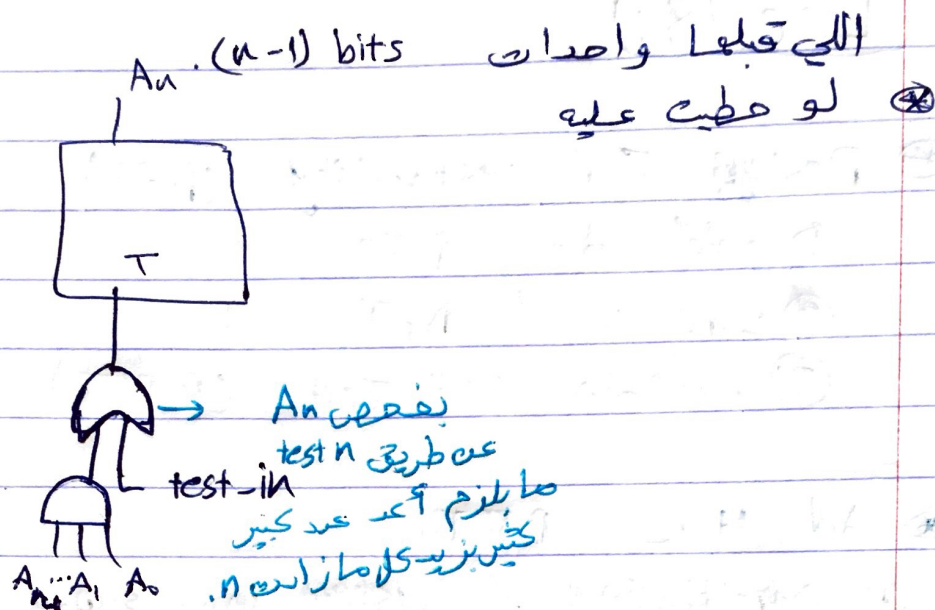 اللي قبلها واحدات (n-1) bits.
An
⊛ لو حطيت عليه
T
بفحص An
عن طريق test n
test-in
ما بلزم أعد عدد كبير
كثير بزيد كل ما زادت n.
A₁ A₀